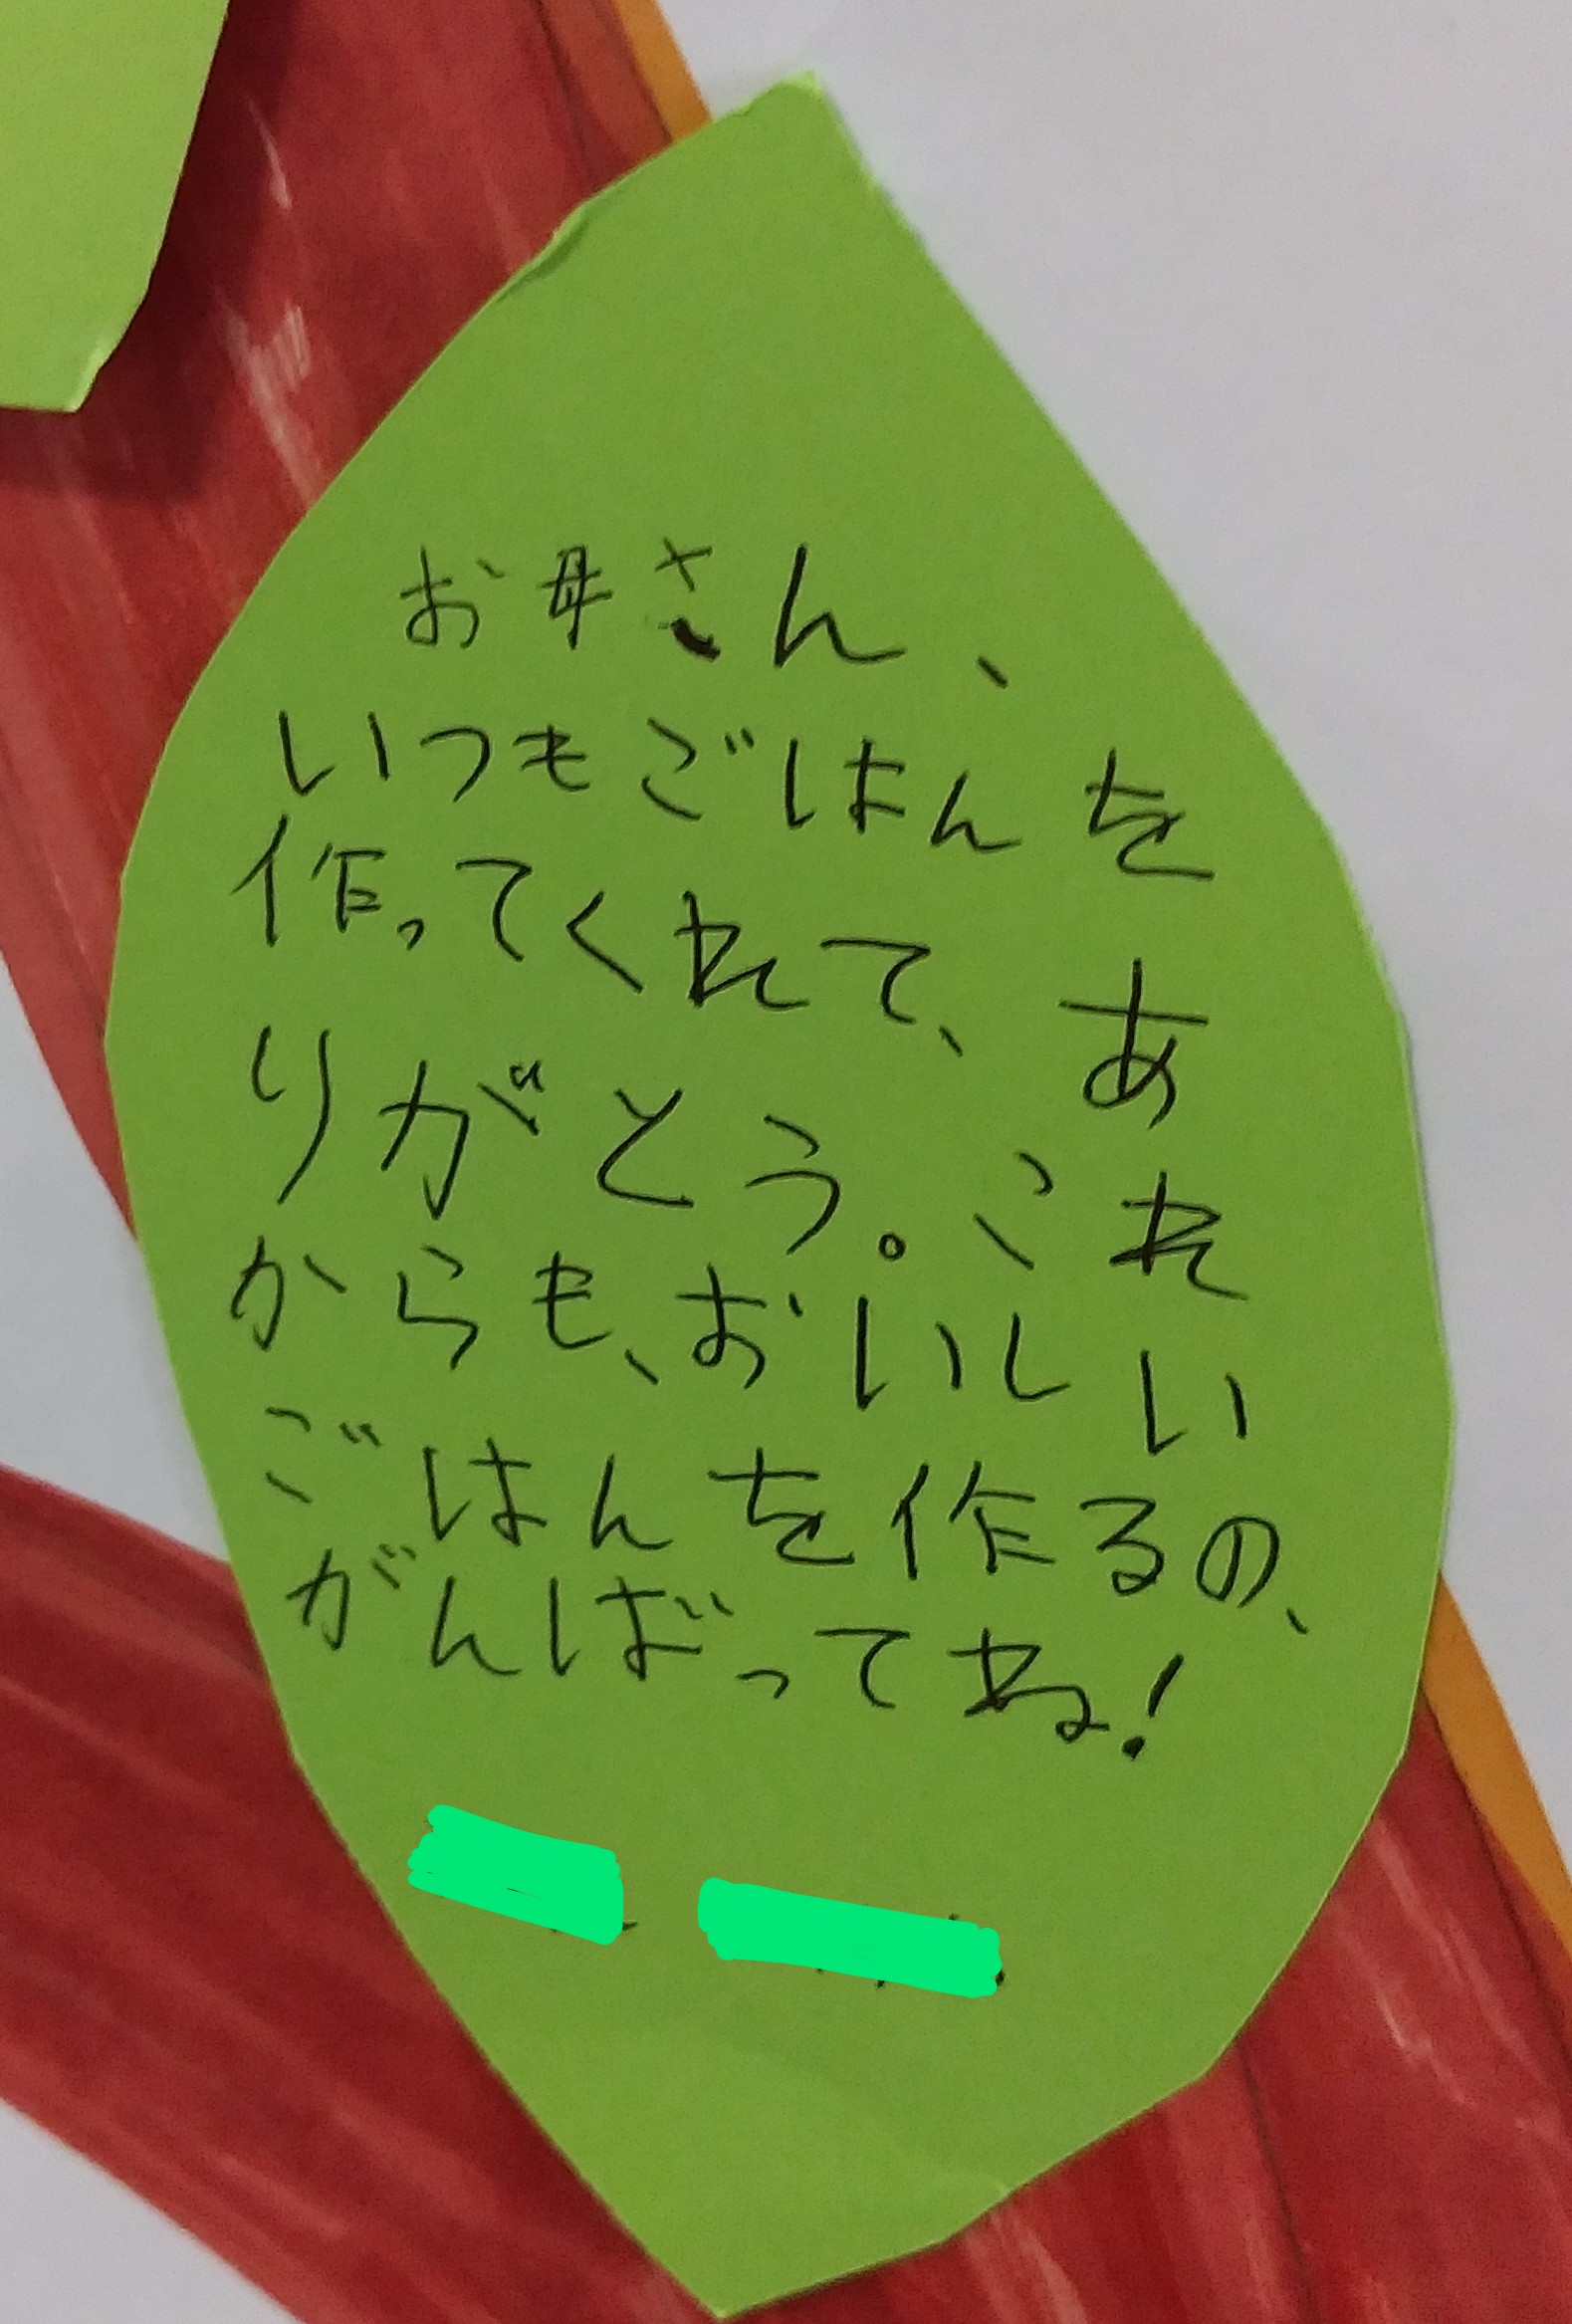 お母さん、
いつもごはんを
作ってくれて、あ
りがとう。これ
からも、おいしい
ごはんを作るの、
がんばってね!